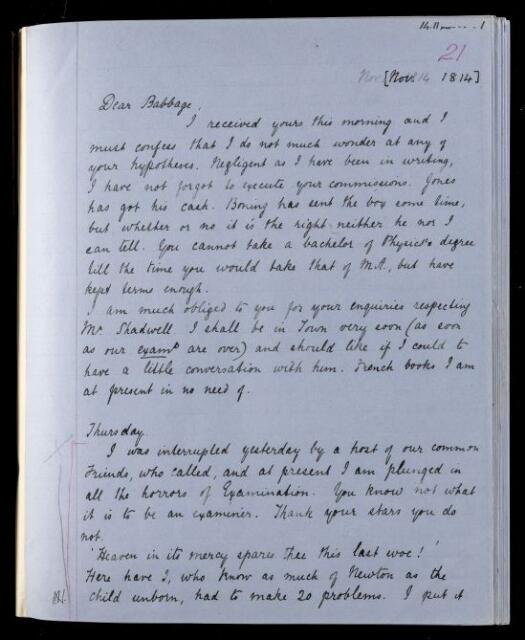 21
Nov. [Nov. 14 1814]
Dear Babbage,
I received yours this morning and I
must confess that I do not much wonder at any of
your hypotheses. Negligent as I have been in writing,
I have not forgot to execute your commissions. Jones
has got his cash. Boning has sent the box some time,
but whether or no it is the right neither he nor I
can tell. You cannot take a bachelor of Physics degree
till the time you would take that of M.A., but have
kept terms enough.
I am much obliged to you for your enquiries respecting
Mr. Shadwell. I shall be in Town very soon (as soon
as our examns are over) and should like if I could to
have a little conversation with him. French books I am
at present in no need of.
Thursday
I was interrupted yesterday by a host of our common
Friends, who called, and at present I am plunged in
all the horrors of Examination. You know not what
it is to be an examiner. Thank your stars you do
not.
'Heaven in its mercy spares thee this last woe!'
Here have I, who know as much of Newton as the
child unborn, had to make 20 problems. I put it